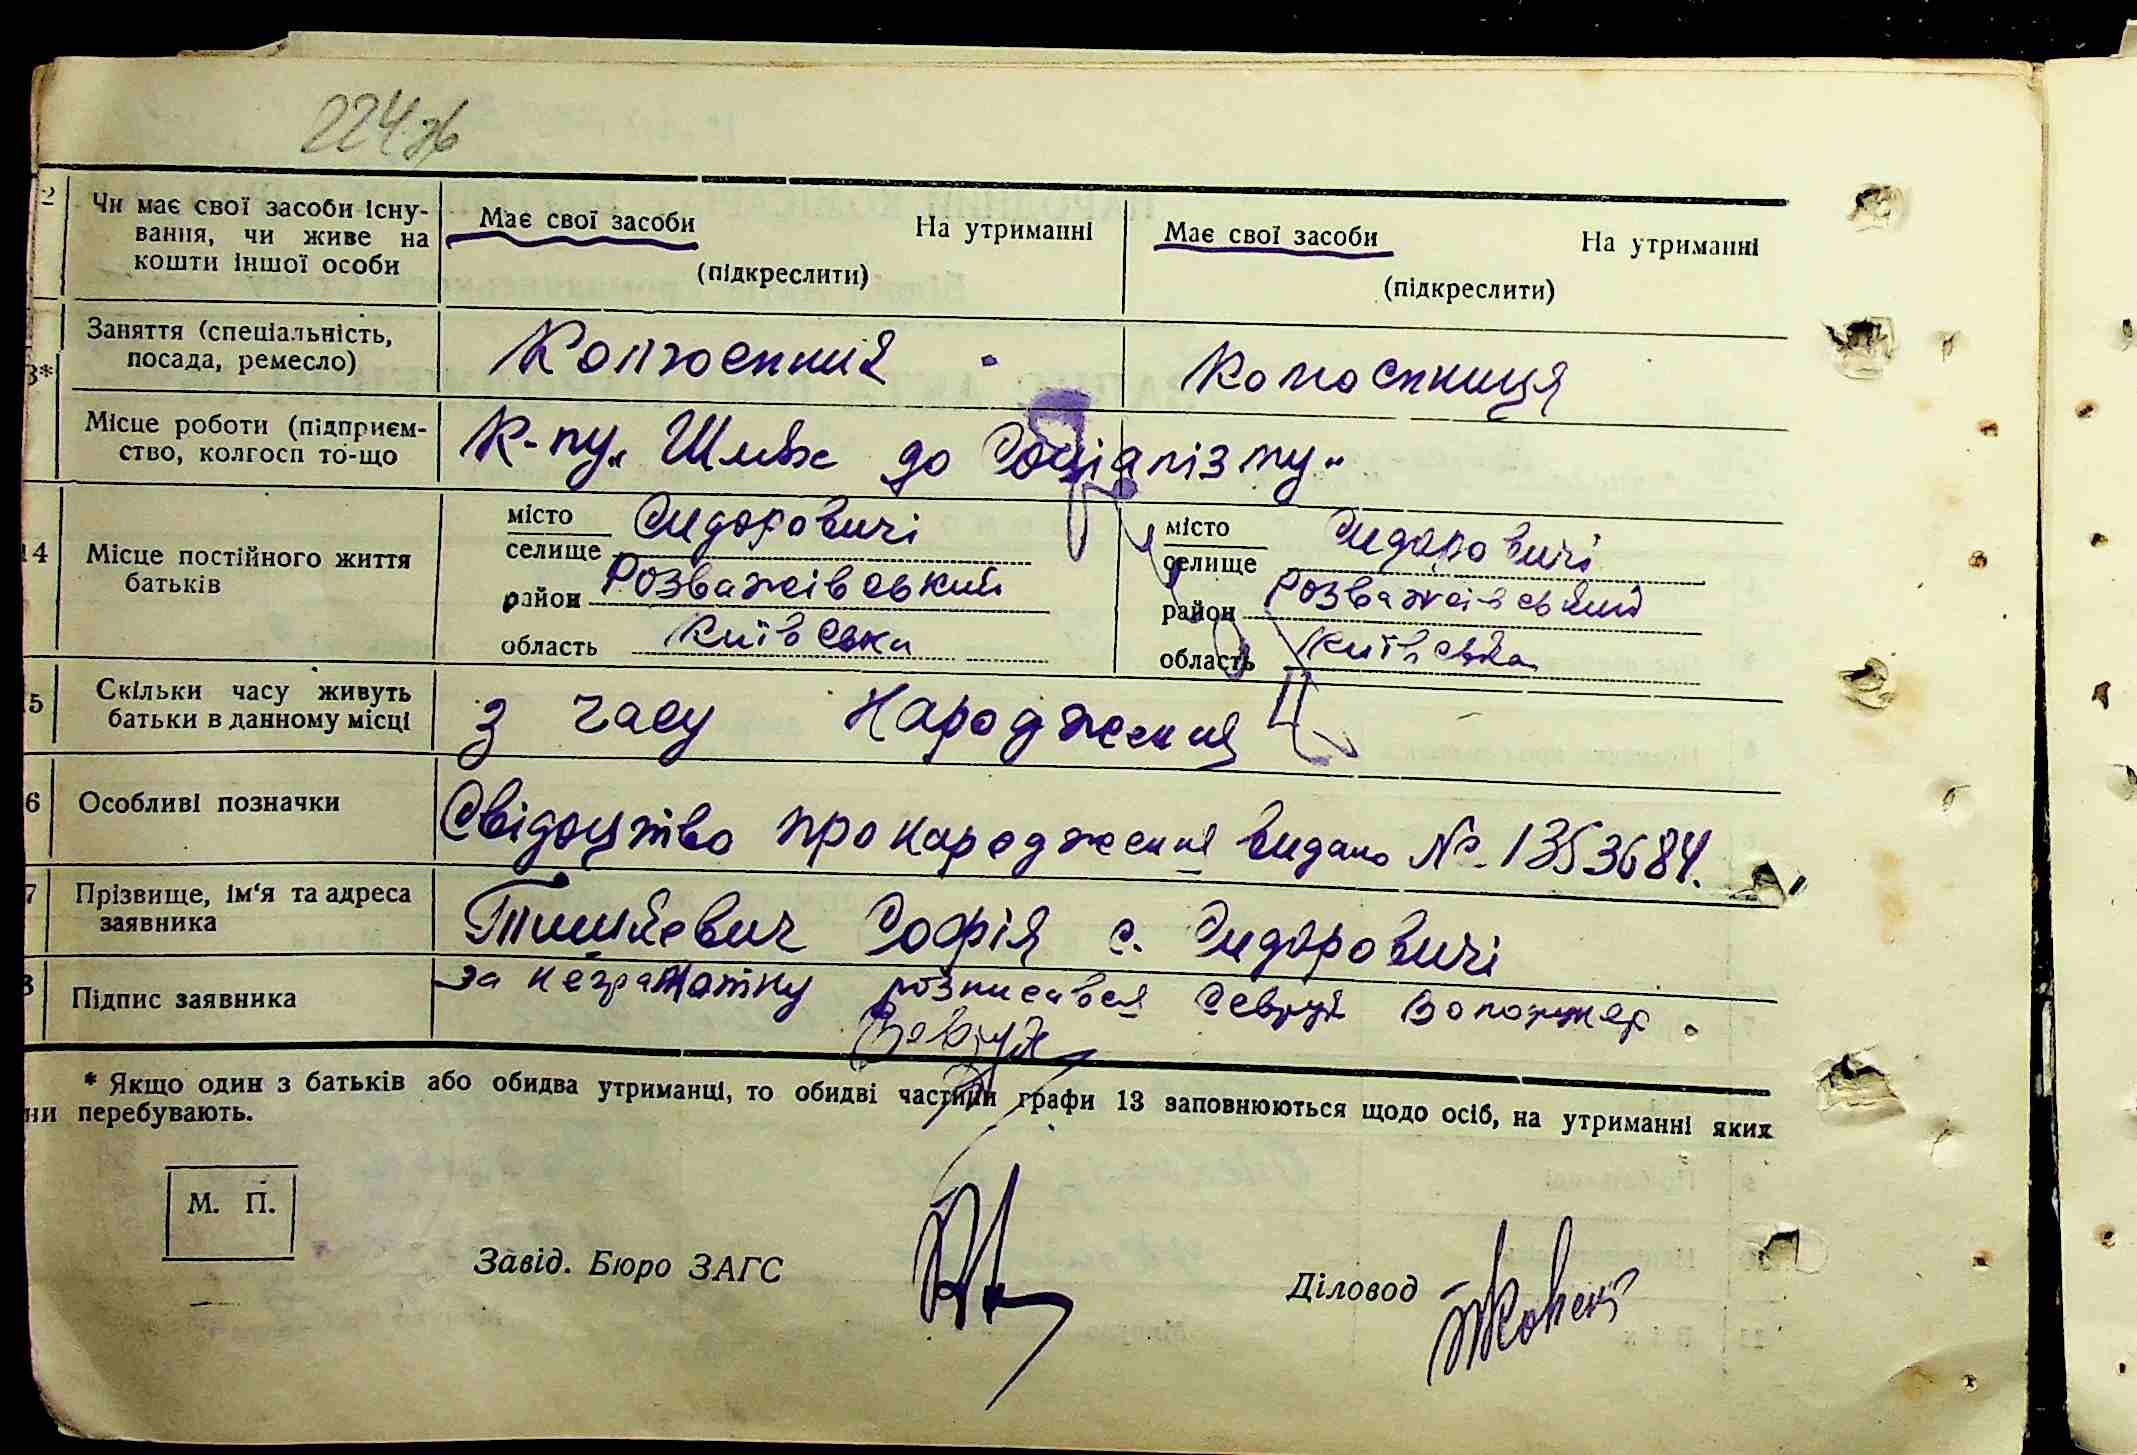 224 зв
2 Чи має свої засоби існу-
вання, чи живе на
кошти іншої особи
Має свої засоби На утриманні
(підкреслити)
Має свої засоби На утриманні
(підкреслити)
3* Заняття (спеціальність,
посада, ремесло)
Колгоспник
Колгоспниця
Місце роботи (підприєм-
ство, колгосп то-що
К-пу „Шлях до Соціалізму"
14 Місце постійного життя
батьків
місто Сидоровичі
селище
район Розважівський
область Київська
місто Сидоровичі
селище
район Розважівський
область Київська
5 Скільки часу живуть
батьки в данному місці
З часу народження
6 Особливі позначки
Свідоцтво про народження видано № 1353684.
7 Прізвище, ім'я та адреса
заявника
Тимкевич Софія с. Сидоровичі
8 Підпис заявника
за неграмотну розписався
* Якщо один з батьків або обидва утриманці, то обидві частини графи 13 заповнюються щодо осіб, на утриманні яких
ни перебувають.
М. П.
Завід. Бюро ЗАГС
Діловод